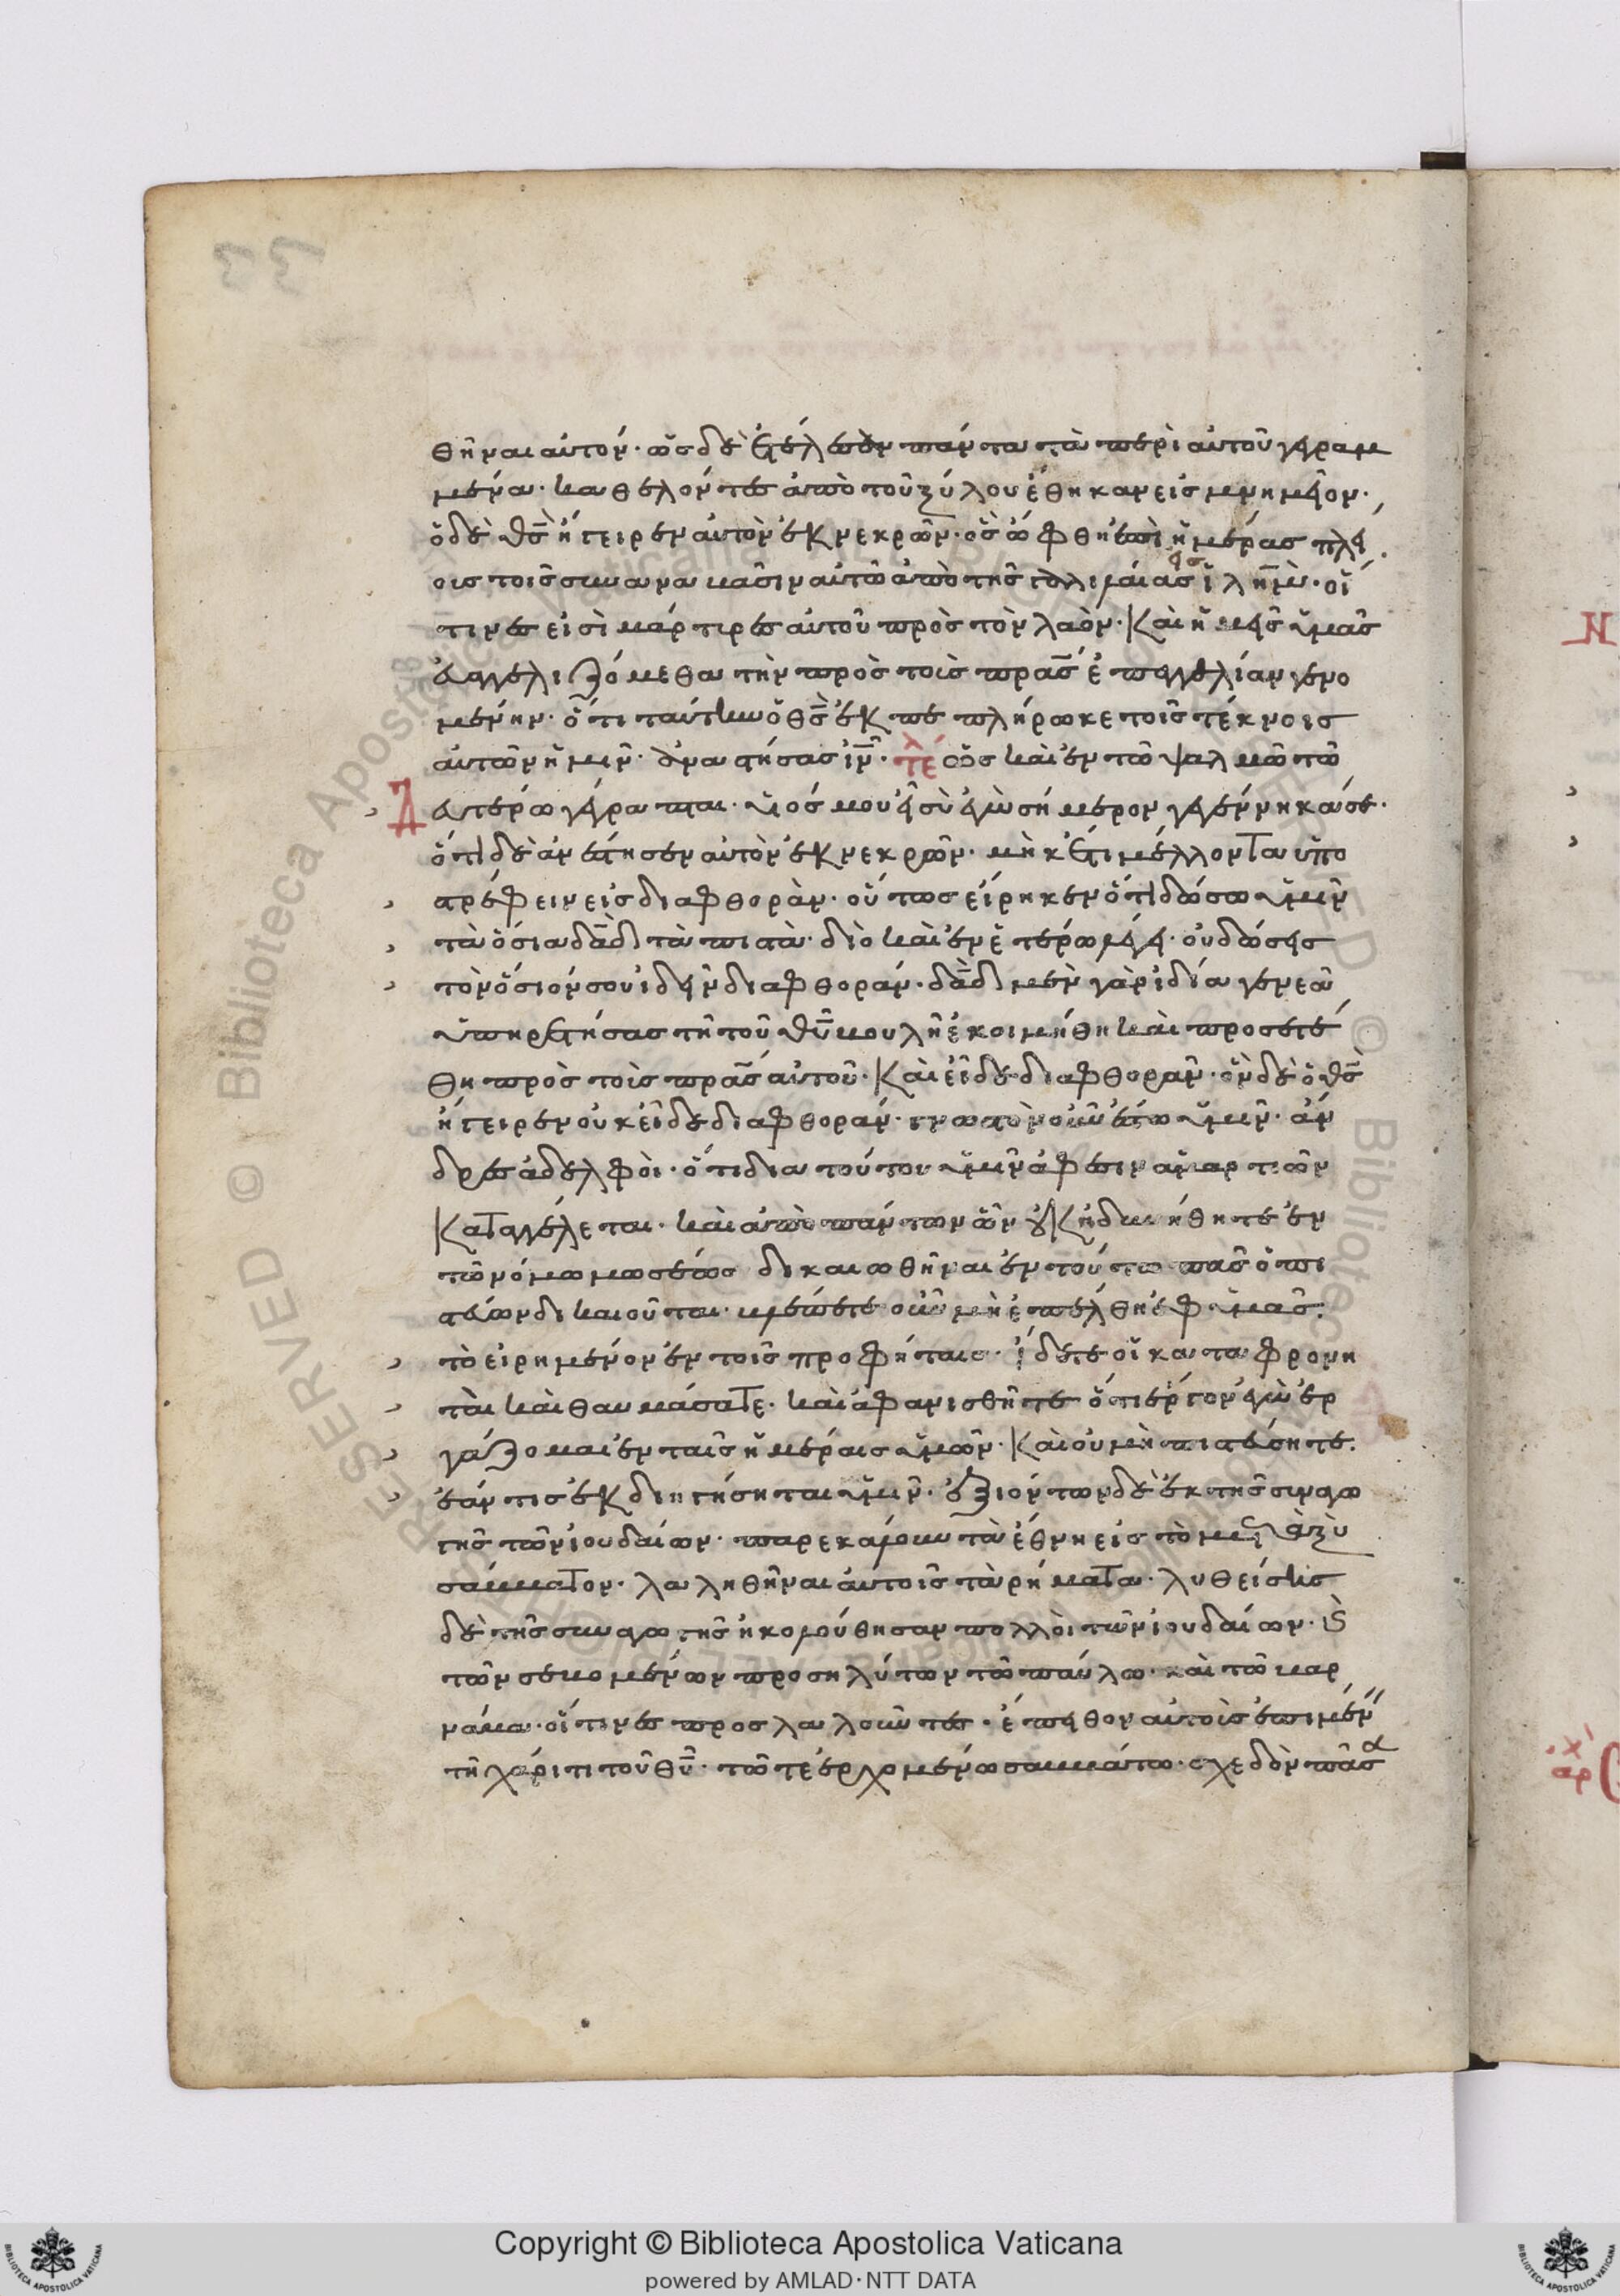 θῆναι αὐτόν· ὡς δὲ ἐτέλεσαν πάντα τὰ περὶ αὐτοῦ γεγραμ
μένα· καθελόντες ἀπὸ τοῦ ξύλου ἔθηκαν εἰς μνημεῖον·
ὁ δὲ θς ἤγειρεν αὐτὸν ἐκ νεκρῶν· ὃς ὤφθη ἐπὶ ἡμέρας πλεί
οις τοῖς συναναβᾶσιν αὐτῶ ἀπὸ τῆς γαλιλαίας εἰς ἱλημ· οἵ
τινές εἰσὶ μάρτυρες αὐτοῦ πρὸς τὸν λαόν· Καὶ ἡμεῖς ὑμᾶς
εὐαγγελιζόμεθα τὴν πρὸς τοὺς πρας ἐπαγγελίαν γενο
μένην· ὅτι ταύτην ὁ θς ἐκπεπλήρωκε τοῖς τέκνοις
αὐτῶν ἡμῖν· ἀναστήσας ιν· τε ὡς καὶ ἐν τῶ ψαλμῶ τῶ
δευτέρω γέγραπται· υἱός μου εἶ σὺ ἐγὼ σήμερον γεγέννηκά σε·
ὅτι δὲ ἀνέστησεν αὐτὸν ἐκ νεκρῶν· μηκέτι μέλλοντα ὑπο
στρέφειν εἰς διαφθορὰν· οὕτως εἴρηκεν ὅτι δώσω ὑμῖν
τὰ ὅσια δαδ τὰ πιστὰ· διὸ καὶ ἐν ἑτέρω λέγει· οὐ δώσεις
τὸν ὅσιόν σου ἰδεῖν διαφθοράν· δαδ μὲν γὰρ ἰδία γενεᾶ
ὑπηρετήσας τῆ τοῦ θυ βουλῆ ἐκοιμήθη καὶ προσετέ
θη πρὸς τοὺς πρας αὐτοῦ· Καὶ εἶδε διαφθοράν· ὃν δὲ ὁ θς
ἤγειρεν οὐκ εἶδε διαφθοράν· γνωστὸν οὖν ἔστω ὑμῖν· ἄν
δρες ἀδελφοὶ· ὅτι δια τούτου ὑμῖν ἄφεσιν ἁμαρτιῶν
Καταγγέλεται· καὶ ἀπὸ πάντων ὧν οὐκ ἠδυνήθητε ἐν
τῶ νόμω μωσέως δικαιωθῆναι ἐν τούτω πᾶς ὁ πι
στεύων δικαιοῦται· βλέπετε οὖν μὴ ἐπέλθη ἐφ ὑμᾶς·
τὸ εἰρημένον ἐν τοῖς προφήταις· ἴδετε οἱ καταφρονη
ταὶ καὶ θαυμάσατε· καὶ ἀφανισθῆτε ὅτι ἔργον ἐγὼ ἐρ
γάζομαι ἐν ταῖς ἡμέραις ὑμῶν· Καὶ οὐ μὴ πιστεύσητε·
ἐάν τις ἐκδιηγήσηται ὑμῖν· ἐξιόντων δὲ ἐκ τῆς συναγω
γῆς τῶν ἰουδαίων· παρεκάλουν τὰ ἔθνη εἰς τὸ μεταξὺ
σάββατον· λαληθῆναι αὐτοῖς τὰ ρήματα· λυθείσης
δὲ τῆς συναγωγῆς ἠκολούθησαν πολλοὶ τῶν ἰουδαίων· καὶ
τῶν σεβομένων προσηλύτων τῶ παύλω· καὶ τῶ βαρ
νάβα· οἵτινες προσλαλοῦντες· ἔπειθον αὐτοὺς ἐπιμέν
τῆ χάριτι τοῦ θυ· τῶ τε ἐρχομένω σαββάτω· σχεδὸν πᾶσα